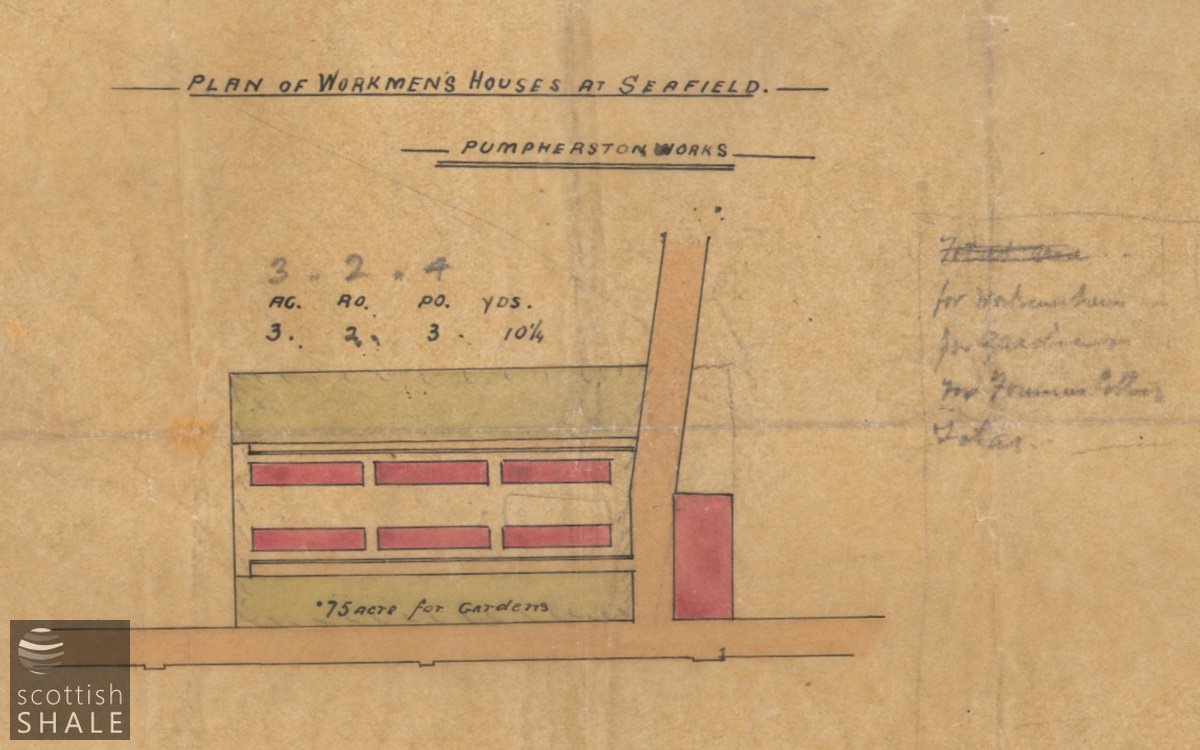 PLAN OF WORKMEN'S HOUSES AT SEAFIELD.
PUMPHERSTON WORKS
3 . 2 . 4
AC. RO. PO. YDS.
3. 2. 3. 10¼
·75 acre for Gardens
for
for Gardens
for Foremen
Total
scottish
SHALE